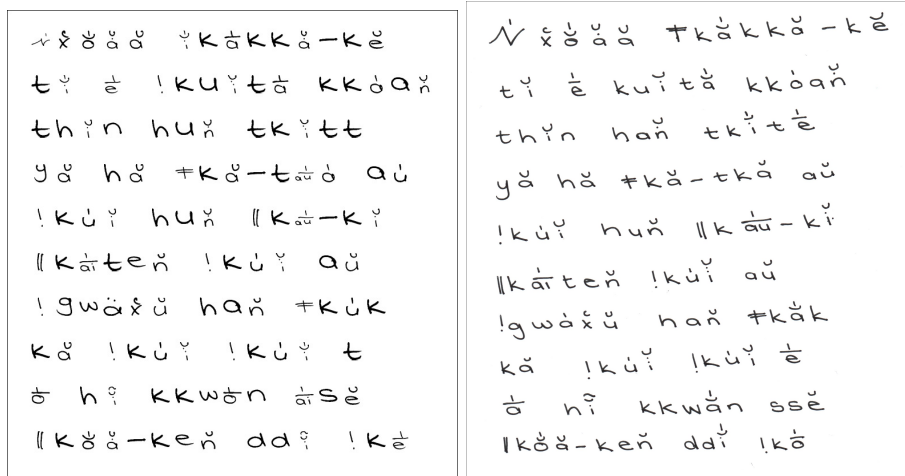 Ṅ x̌ŏă̍ă ǐkā̆kkă̍-kĕ
tǐ ḗ !kuǐtā̍ kkȯaň
thǐn huň tkǐtt
yă hă ǂkă-tāu̍ȯ au̍
!ku̍ǐ huň ǁkāu̍-kǐ
ǁkāi̍teň !ku̍ǐ aŭ
!gwa̍x̌ŭ haň ǂku̍k
kă !ku̍ǐ !ku̍ǐ t
ō̍ hĩ kkwō̍n āi̍sĕ
ǁkŏ̍ă-keň ddǐ !kē̍
Ṅ x̌ŏ̍ă̍ă ǂkă̍kkă-kĕ
tǐ ē̍ kuǐtă̍ kkȯaň
thǐn haň tkǐtē̍
yă hă ǂkă-tkă aŭ
!ku̍ǐ huň ǁkāu̍-kǐ
ǁkāi̍teň !ku̍ǐ aŭ
!gwa̍x̌ŭ haň ǂkă̍k
kă !ku̍ǐ !ku̍ǐ ē̍
ā̍ hĩ kkwă̍n ssĕ
ǁkŏ̍ă-keň ddǐ̍ !kō̍